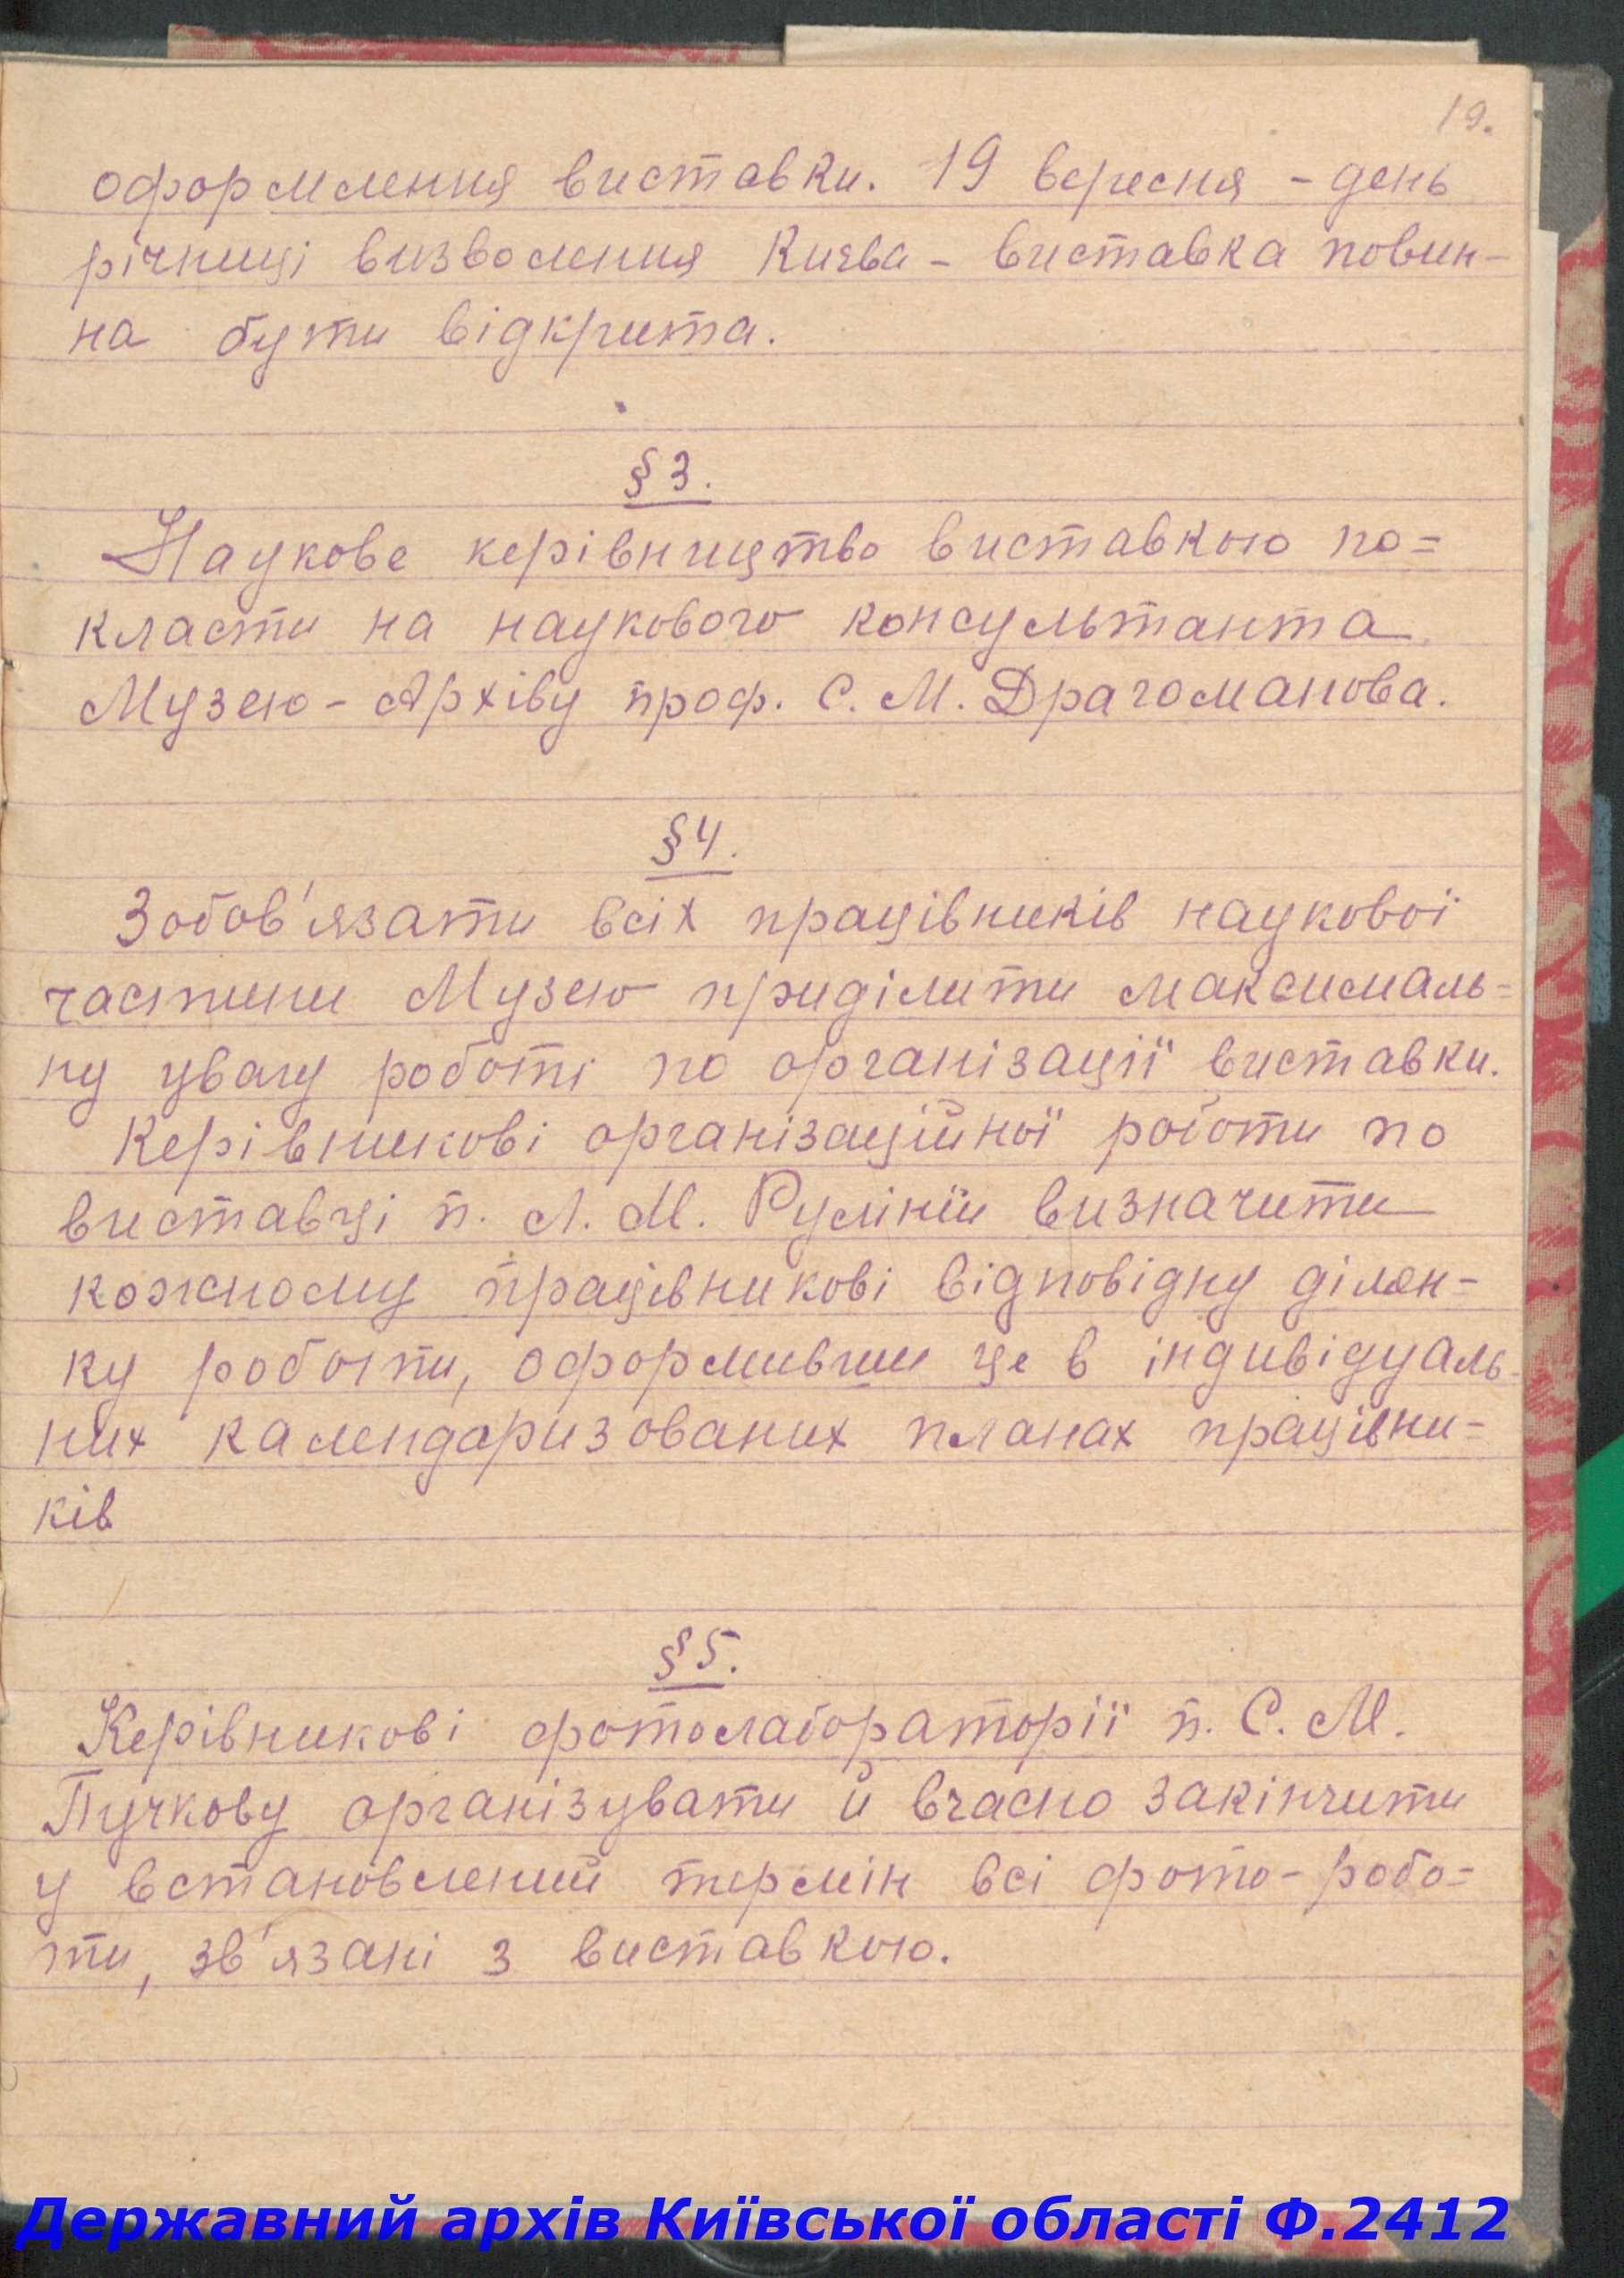 19.
оформлення виставки. 19 вересня - день
річниці визволення Києва - виставка повин-
на бути відкрита.
§ 3.
Наукове керівництво виставкою по=
класти на наукового консультанта
Музею - Архіву проф. С. М. Драгоманова.
§ 4.
Зобов'язати всіх працівників наукової
частини Музею приділити максималь=
ну увагу роботі по організації виставки.
Керівникові організаційної роботи по
виставці п. Л. М. Руліній визначити
кожному працівникові відповідну ділян-
ку роботи, оформивши це в індивідуаль-
них календаризованих планах працівни=
ків
§ 5.
Керівникові фотолабораторії п. С. М.
Пучкову організувати й вчасно закінчити
у встановлений термін всі фото-робо=
ти, зв'язані з виставкою.
Державний архів Київської області Ф.2412